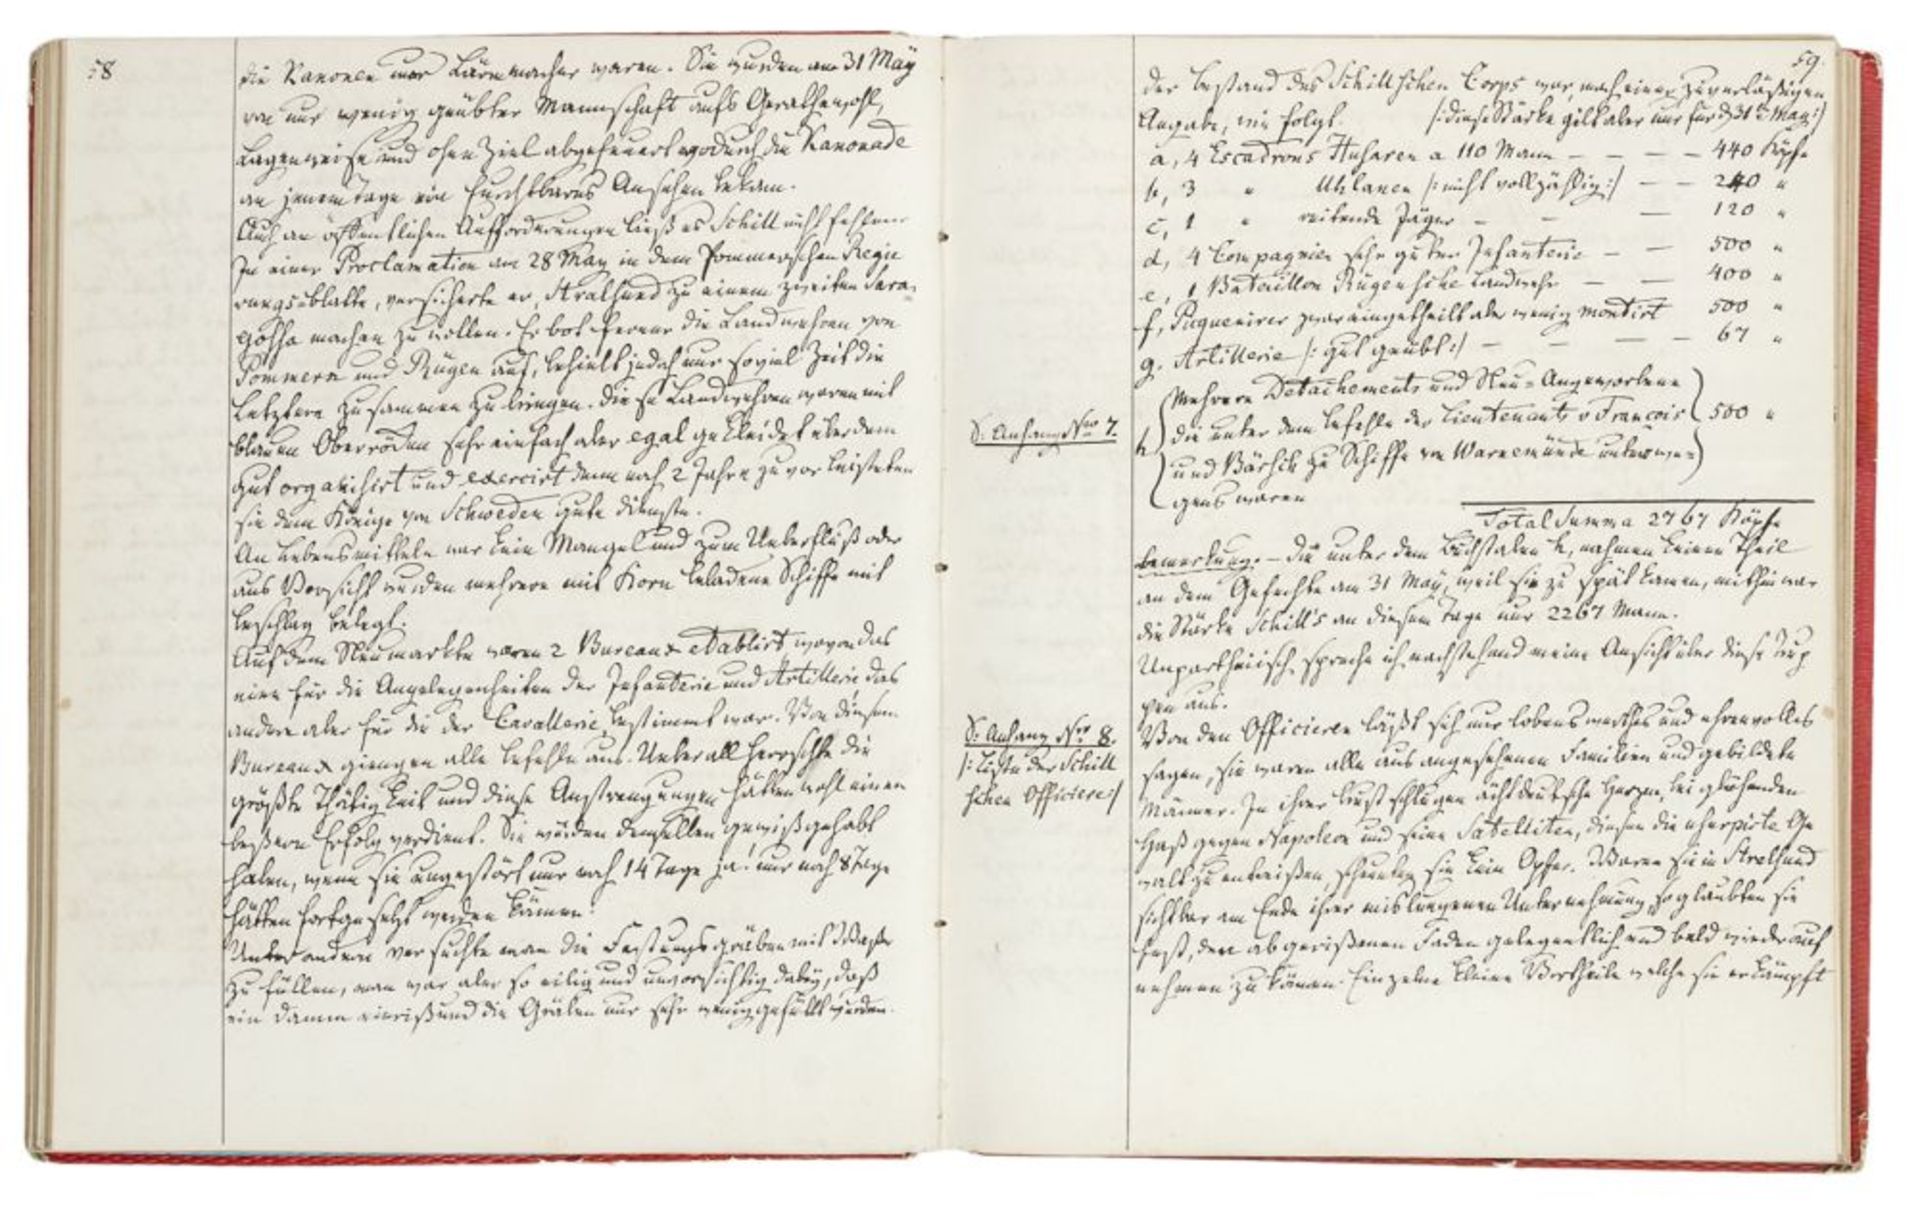 58
die Kanonen nur Lärmmacher waren. Sie wurden am 31 May
von nur wenig geübter Mannschaft aufs Gerathewohl,
Lagenweise und ohne Ziel abgefeuert wodurch die Kanonade
an jenem Tage ein furchtbares Ansehen bekam.
Auch an öffentlichen Aufforderungen ließ es Schill nicht fehlen.
In einer Proclamation am 28 May in dem Pommerschen Regie
rungsblatte, versicherte er, Stralsund zu einem zweiten Sara=
gossa machen zu wollen. Er bot ferner die Landwehren von
Pommern und Rügen auf, behielt jedoch nur soviel Zeit die
Letztere zusammen zu bringen. Diese Landwehren waren mit
blauen Oberröcken sehr einfach aber egal gekleidet überdem
gut organisirt und exercirt denn noch 2 Jahre zuvor leisteten
sie dem Könige von Schweden gute Dienste.
An Lebensmitteln war kein Mangel und zum Ueberfluß oder
aus Vorsicht wurden mehrere mit Korn beladene Schiffe mit
Beschlag belegt.
Auf dem Neumarkte waren 2 Bureaux etablirt wovon das
eine für die Angelegenheiten der Infanterie und Artillerie, das
andere aber für die der Cavallerie bestimmt war. Von diesen
Bureaux giengen alle Befehle aus. Ueberall herrschte die
größte Thätigkeit und diese Anstrengungen hätten wohl einen
beßern Erfolg verdient. Sie würden denselben gewiß gehabt
haben, wenn sie ungestört nur noch 14 Tage ja! nur noch 8 Tage
hätten fortgesetzt werden können.
Unter andern versuchte man die Festungsgräben mit Waßer
zu füllen, man war aber so eilig und unvorsichtig dabey, daß
ein Damm einriß und die Gräben nur sehr wenig gefüllt wurden.
59.
Der Bestand des Schillschen Corps war, nach einer zuverläßigen
Angabe, wie folgt. /: diese Stärke gilt aber nur für d 31t May :/
a, 4 Escadrons Husaren a 110 Mann – – – – 440 Köpfe
b, 3 " Uhlanen /: nicht vollzählig :/ – – 240 "
c, 1 " reitende Jäger – – – 120 "
d, 4 Compagnien sehr guter Infanterie – – 500 "
e, 1 Bataillon Rügensche Landwehr – – 400 "
f, Piquenirer zwar eingetheilt aber wenig montirt 500 "
g. Artillerie /: gut geübt :/ – – – – 67 "
h) Mehrere Detachements und Neu=Angeworbene
die unter dem Befehle der Lieutenants v François 500 "
und Bärsch zu Schiffe von Warnemünde unterwe=
gens waren
S: Anhang Nro 7.
Total Summa 2767 Köpfe
Bemerkung. – Die unter dem Buchstaben h, nahmen keinen Theil
an dem Gefechte am 31 May, weil sie zu spät kamen, mithin war
die Stärke Schill's an diesem Tage nur 2267 Mann.
Unpartheiisch spreche ich nachstehend meine Ansicht über diese Trup
pen aus.
S: Anhang Nro 8.
/: Liste der Schill
schen Officiere :/
Von den Officieren läßt sich nur lobenswerthes und ehrenvolles
sagen, sie waren alle aus angesehenen Familien und gebildete
Männer. In ihrer Brust schlugen ächt deutsche Herzen, bei glühenden
Haß gegen Napoleon und seine Satelliten, diesen die usurpirte Ge
walt zu entreißen, scheuten sie kein Opfer. Waren sie in Stralsund
sichtbar am Ende ihrer mislungenen Unternehmung, so glaubten sie
fest, den abgerißenen Faden gelegentlich und bald wieder auf
nehmen zu können. Einzelne kleine Vortheile welche sie erkämpft